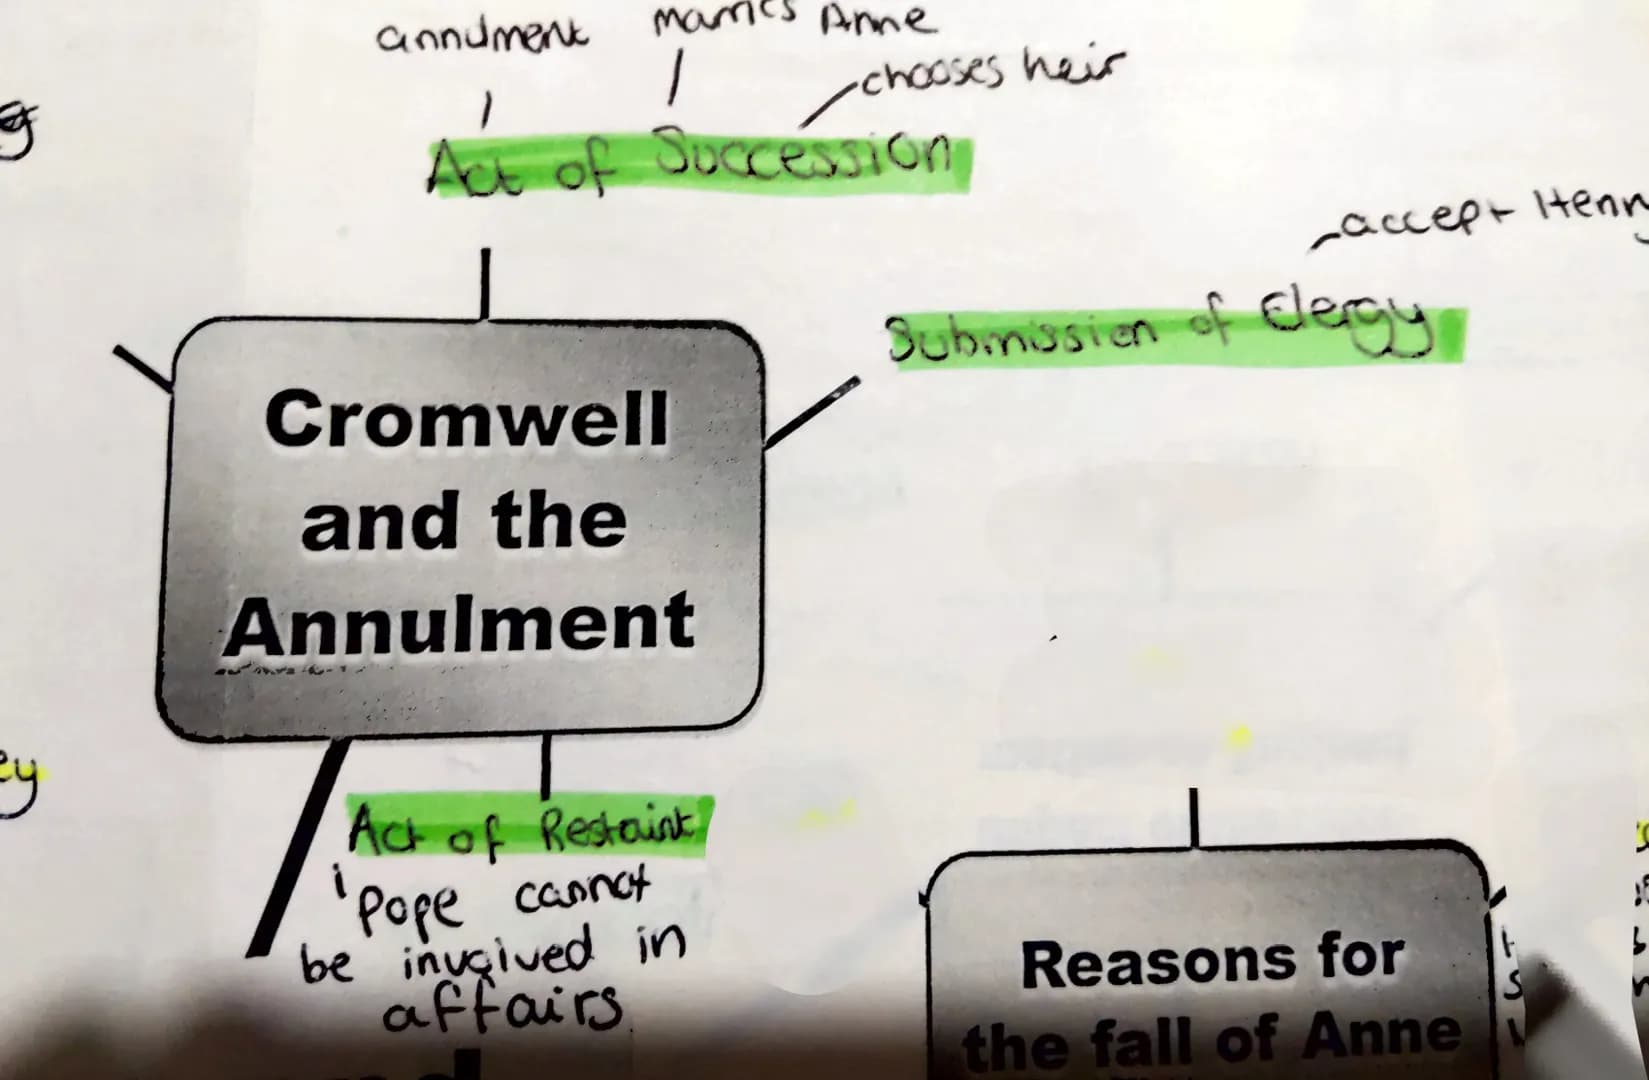 annulment
marries Anne
chooses heir
Act of Succession
accept Henry
Submission of Clergy
Cromwell
and the
Annulment
ey
Act of Restaint
Pope cannot
be invoived in
affairs
Reasons for
the fall of Anne